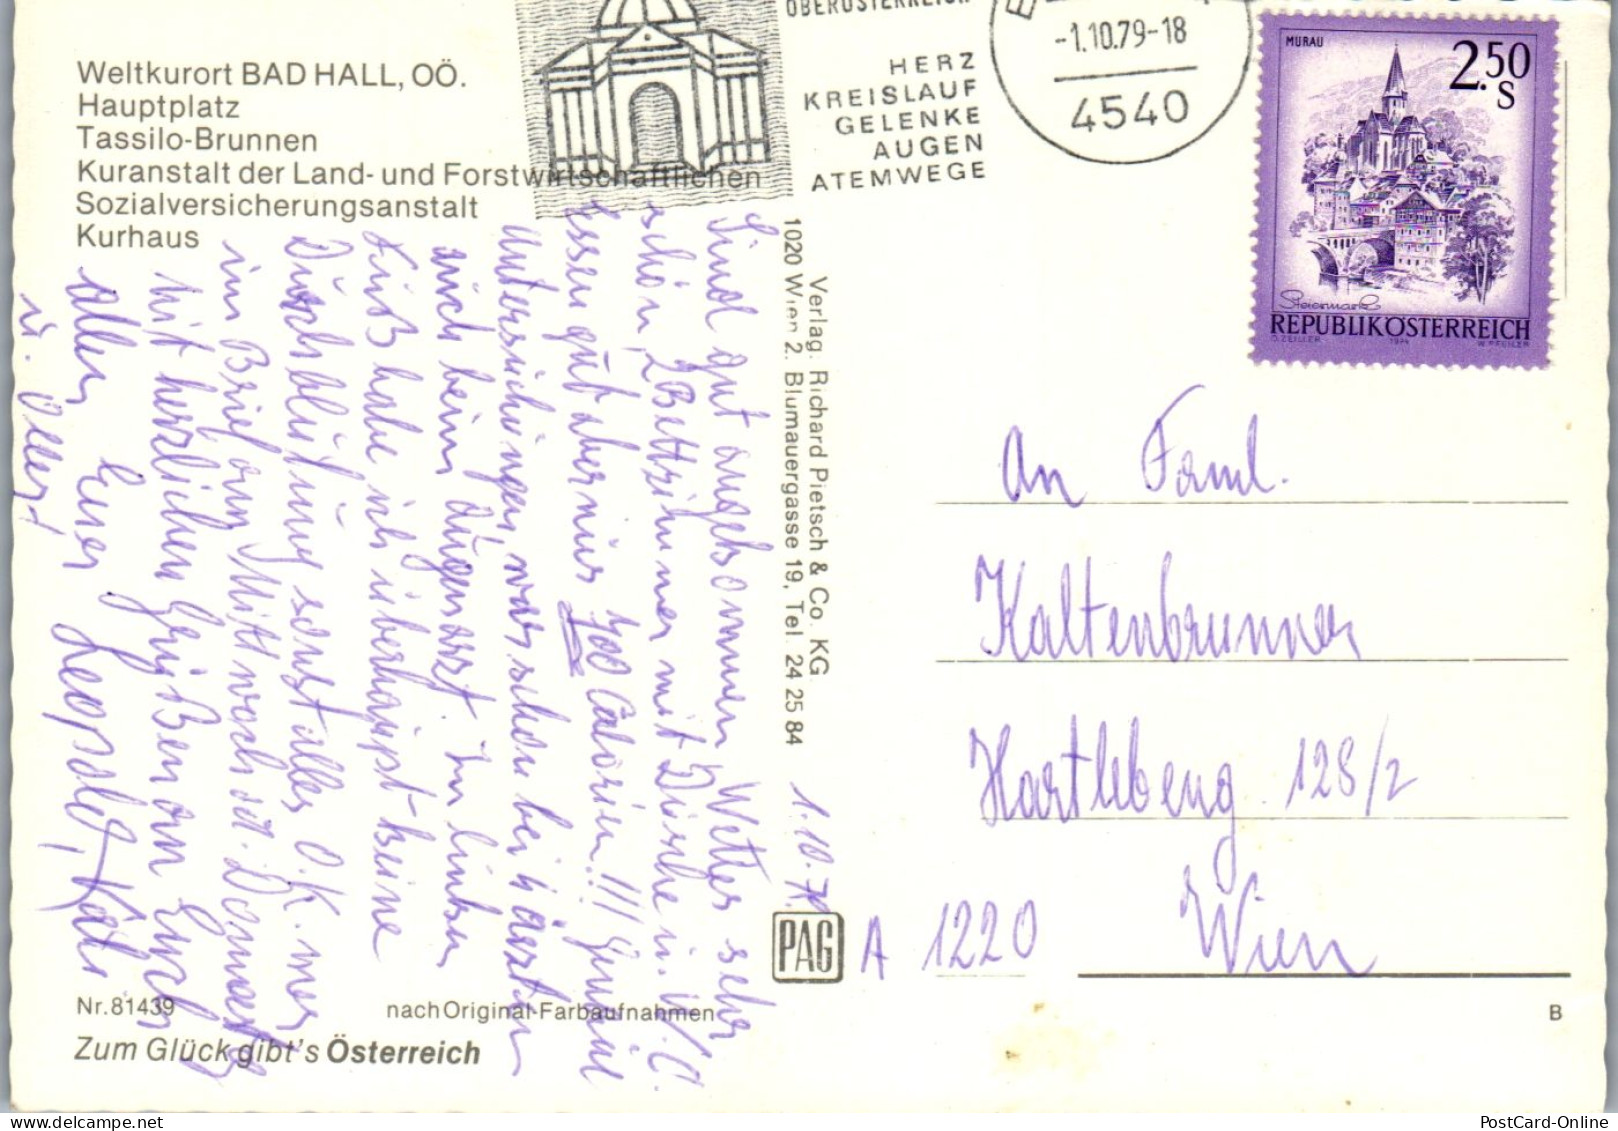 Weltkurort BAD HALL, OÖ.
Hauptplatz
Tassilo-Brunnen
Kuranstalt der Land- und Forstwirtschaftlichen
Sozialversicherungsanstalt
Kurhaus
OBERÖSTERREICH
HERZ
KREISLAUF
GELENKE
AUGEN
ATEMWEGE
-1.10.79-18
4540
MURAU
2.50
S
Steiermark
REPUBLIK ÖSTERREICH
O. ZEILLER 1974 W. PFEILER
1.10.79
Sind gut angekommen Wetter sehr
schön, 2 Bettzimmer mit Dusche u. W.C.
Essen gut aber nur 400 Calorien!!!
Untersuchungen, war schon bei 4 Ärzten
auch beim Augenarzt. Im linken
Fuß habe ich überhaupt keine
Durchblutung sonst alles O.K. mer
im Brief am Mittwoch od. Donnerstag
Mit herzlichen Grüßen an Euch
allen Euer Leopold, Kath.
u.
Verlag: Richard Pietsch & Co. KG
1020 Wien 2. Blumauergasse 19, Tel. 24 25 84
An Faml.
Kaltenbrunner
Hartlebeng. 128/2
A 1220 Wien
PAG
Nr. 81439 nach Original-Farbaufnahmen B
Zum Glück gibt's Österreich
PostCard-Online